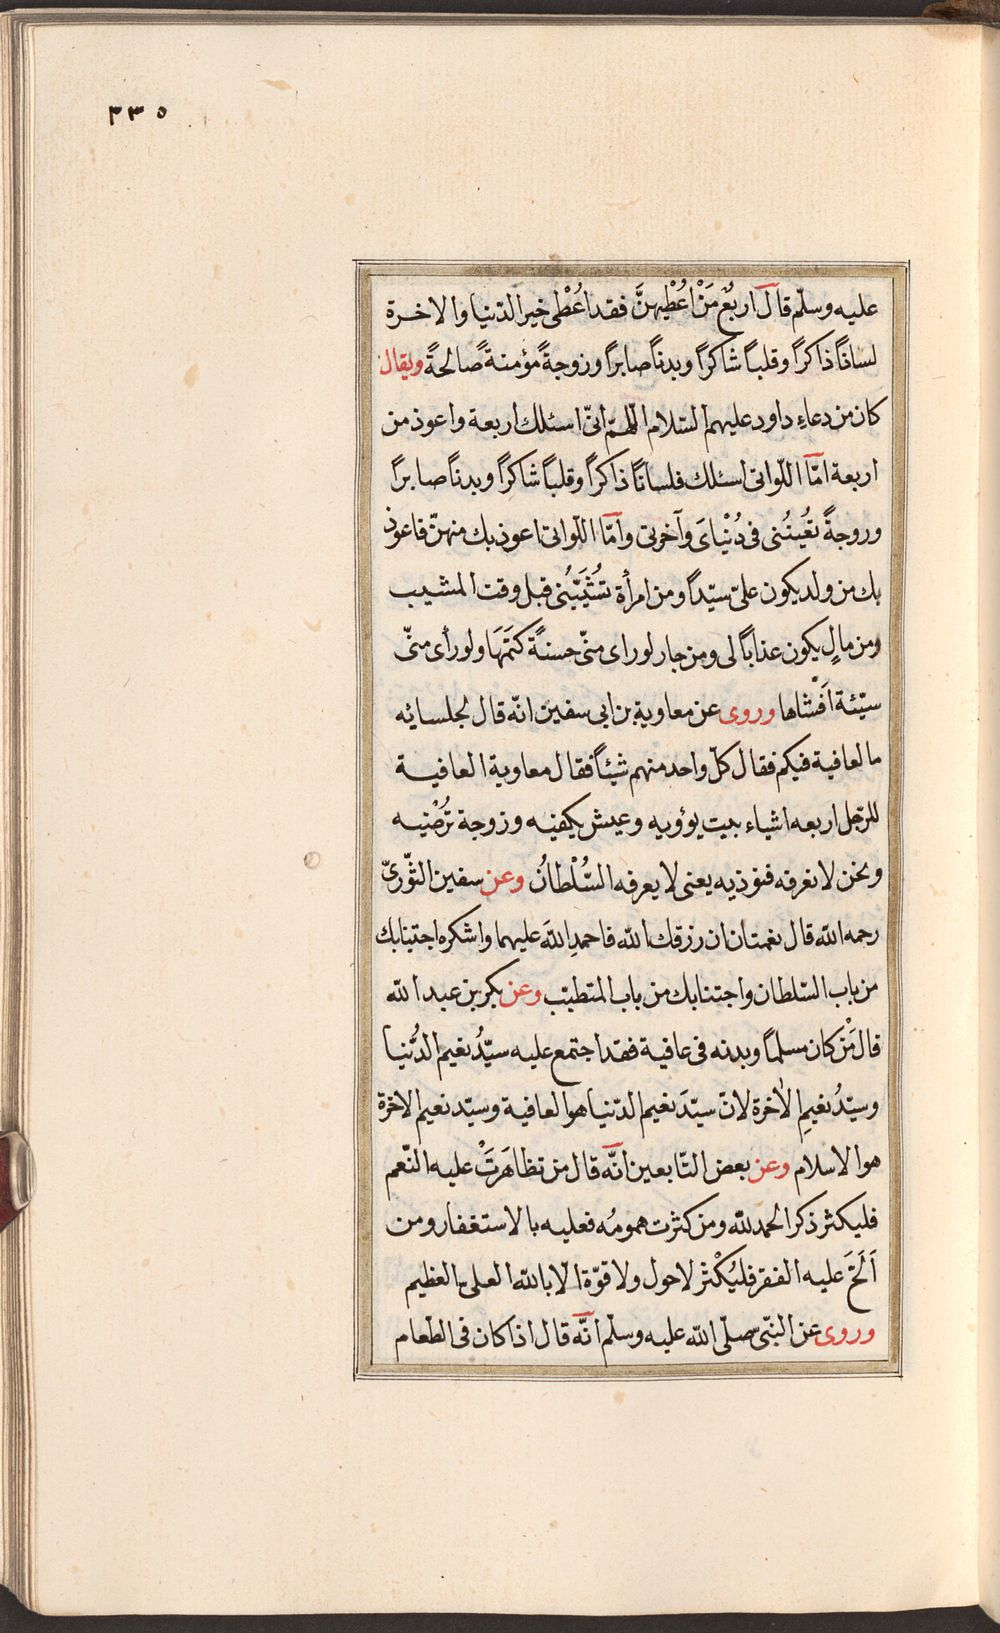 ٣٣٥
عليه وسلّم قال اربع مَنْ اُعْطِيهنَّ فقد اُعْطى خير الدّنيا والاخرة
لساناً ذاكراً وقلباً شاكراً وبدناً صابراً وزوجةً مؤمنةً صالحةً ويقال
كان من دعاءِ داود عليهم السّلام اللّهمّ انّى اسئلك اربعة واعوذ من
اربعة امّا اللّواتى اسئلك فلساناً ذاكراً وقلباً شاكراً وبدناً صابراً
وروجةً تعُينُنى فى دُنْياىَ وآخرتى وامّا اللّواتى اعوذ بك منهنّ فاعوذ
بك من ولد يكون علىّ سيّداً ومن امرأة تشُيّبُنى قبل وقت المشيب
ومن مالٍ يكون عذاباً لى ومن جار لو راى منّى حسنةً كتمَهَا ولو رأى منّى
سيّئة اَفْشاها وروى عن معاوية بن ابى سفين انّه قال لجلسائه
ما لعافية فيكم فقال كلّ واحد منهم شيئاً فقال معاوية العافية
للرّجل اربعه اشياء بيت يوؤيه وعيش يكفيه وزوجة تُرضْيه
ونحن لا نعرفه فنوذيه يعنى لا يعرفه السُّلْطانُ وعن سفين الثّورىّ
رحمه الله قال نعمتان ان رزقك الله فاحمدِ اللهَ عليهما واشكره اجتنابك
من باب السّلطان واجتنابك من باب المتطبّب وعن بكر بن عبد الله
قال مَنْ كان مسلماً وبدنه فى عافية فقد اجتمع عليه سيّدُ نعيم الدُّنيا
وسيّدُ نعيمِ الاٰخرة لانّ سيّدَ نعيم الدّنيا هو العافية وسيّد نعيم الاخرة
هو الاسلام وعن بعض التّابعين انّه قال من تظاهَرَتْ عليه النّعم
فليكثر ذكر الحمد لله ومن كثرت همومُه فعليه بالاستغفار ومن
اَلَحَّ عليه الفقر فليُكْثر لا حول ولا قوّة الا بالله العلىّ العظيم
وروى عن النّبىّ صلّى الله عليه وسلّم انّه قال اذا كان فى الطّعام